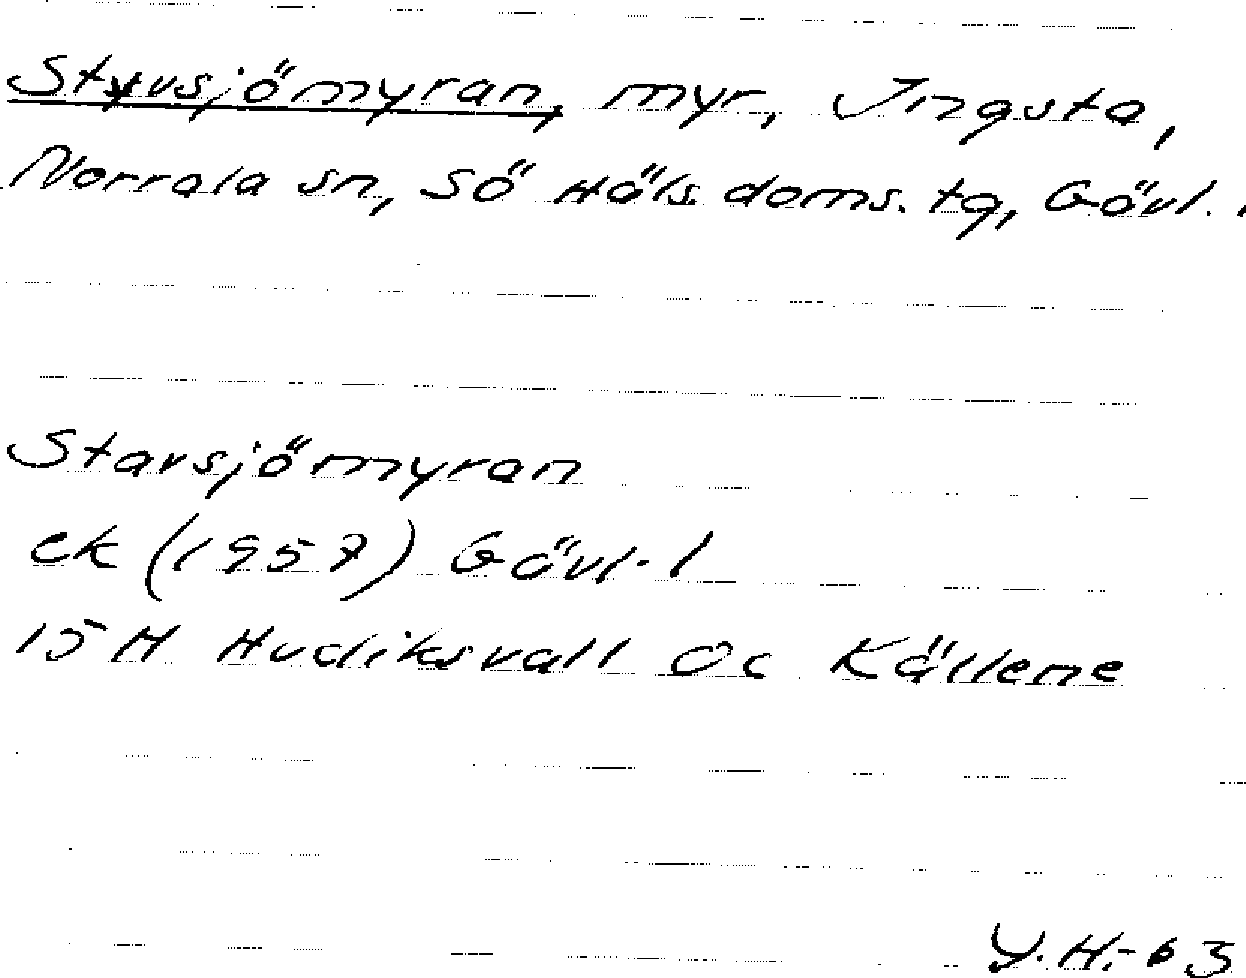 Styvsjömyran, myr, Ingsta,
Norrala sn, Sö Häls. doms. tg, Gävl. l
Stavsjömyran
ek (1957) Gävl. l
15 H Hudiksvall Oc Källene
Y.H.-63